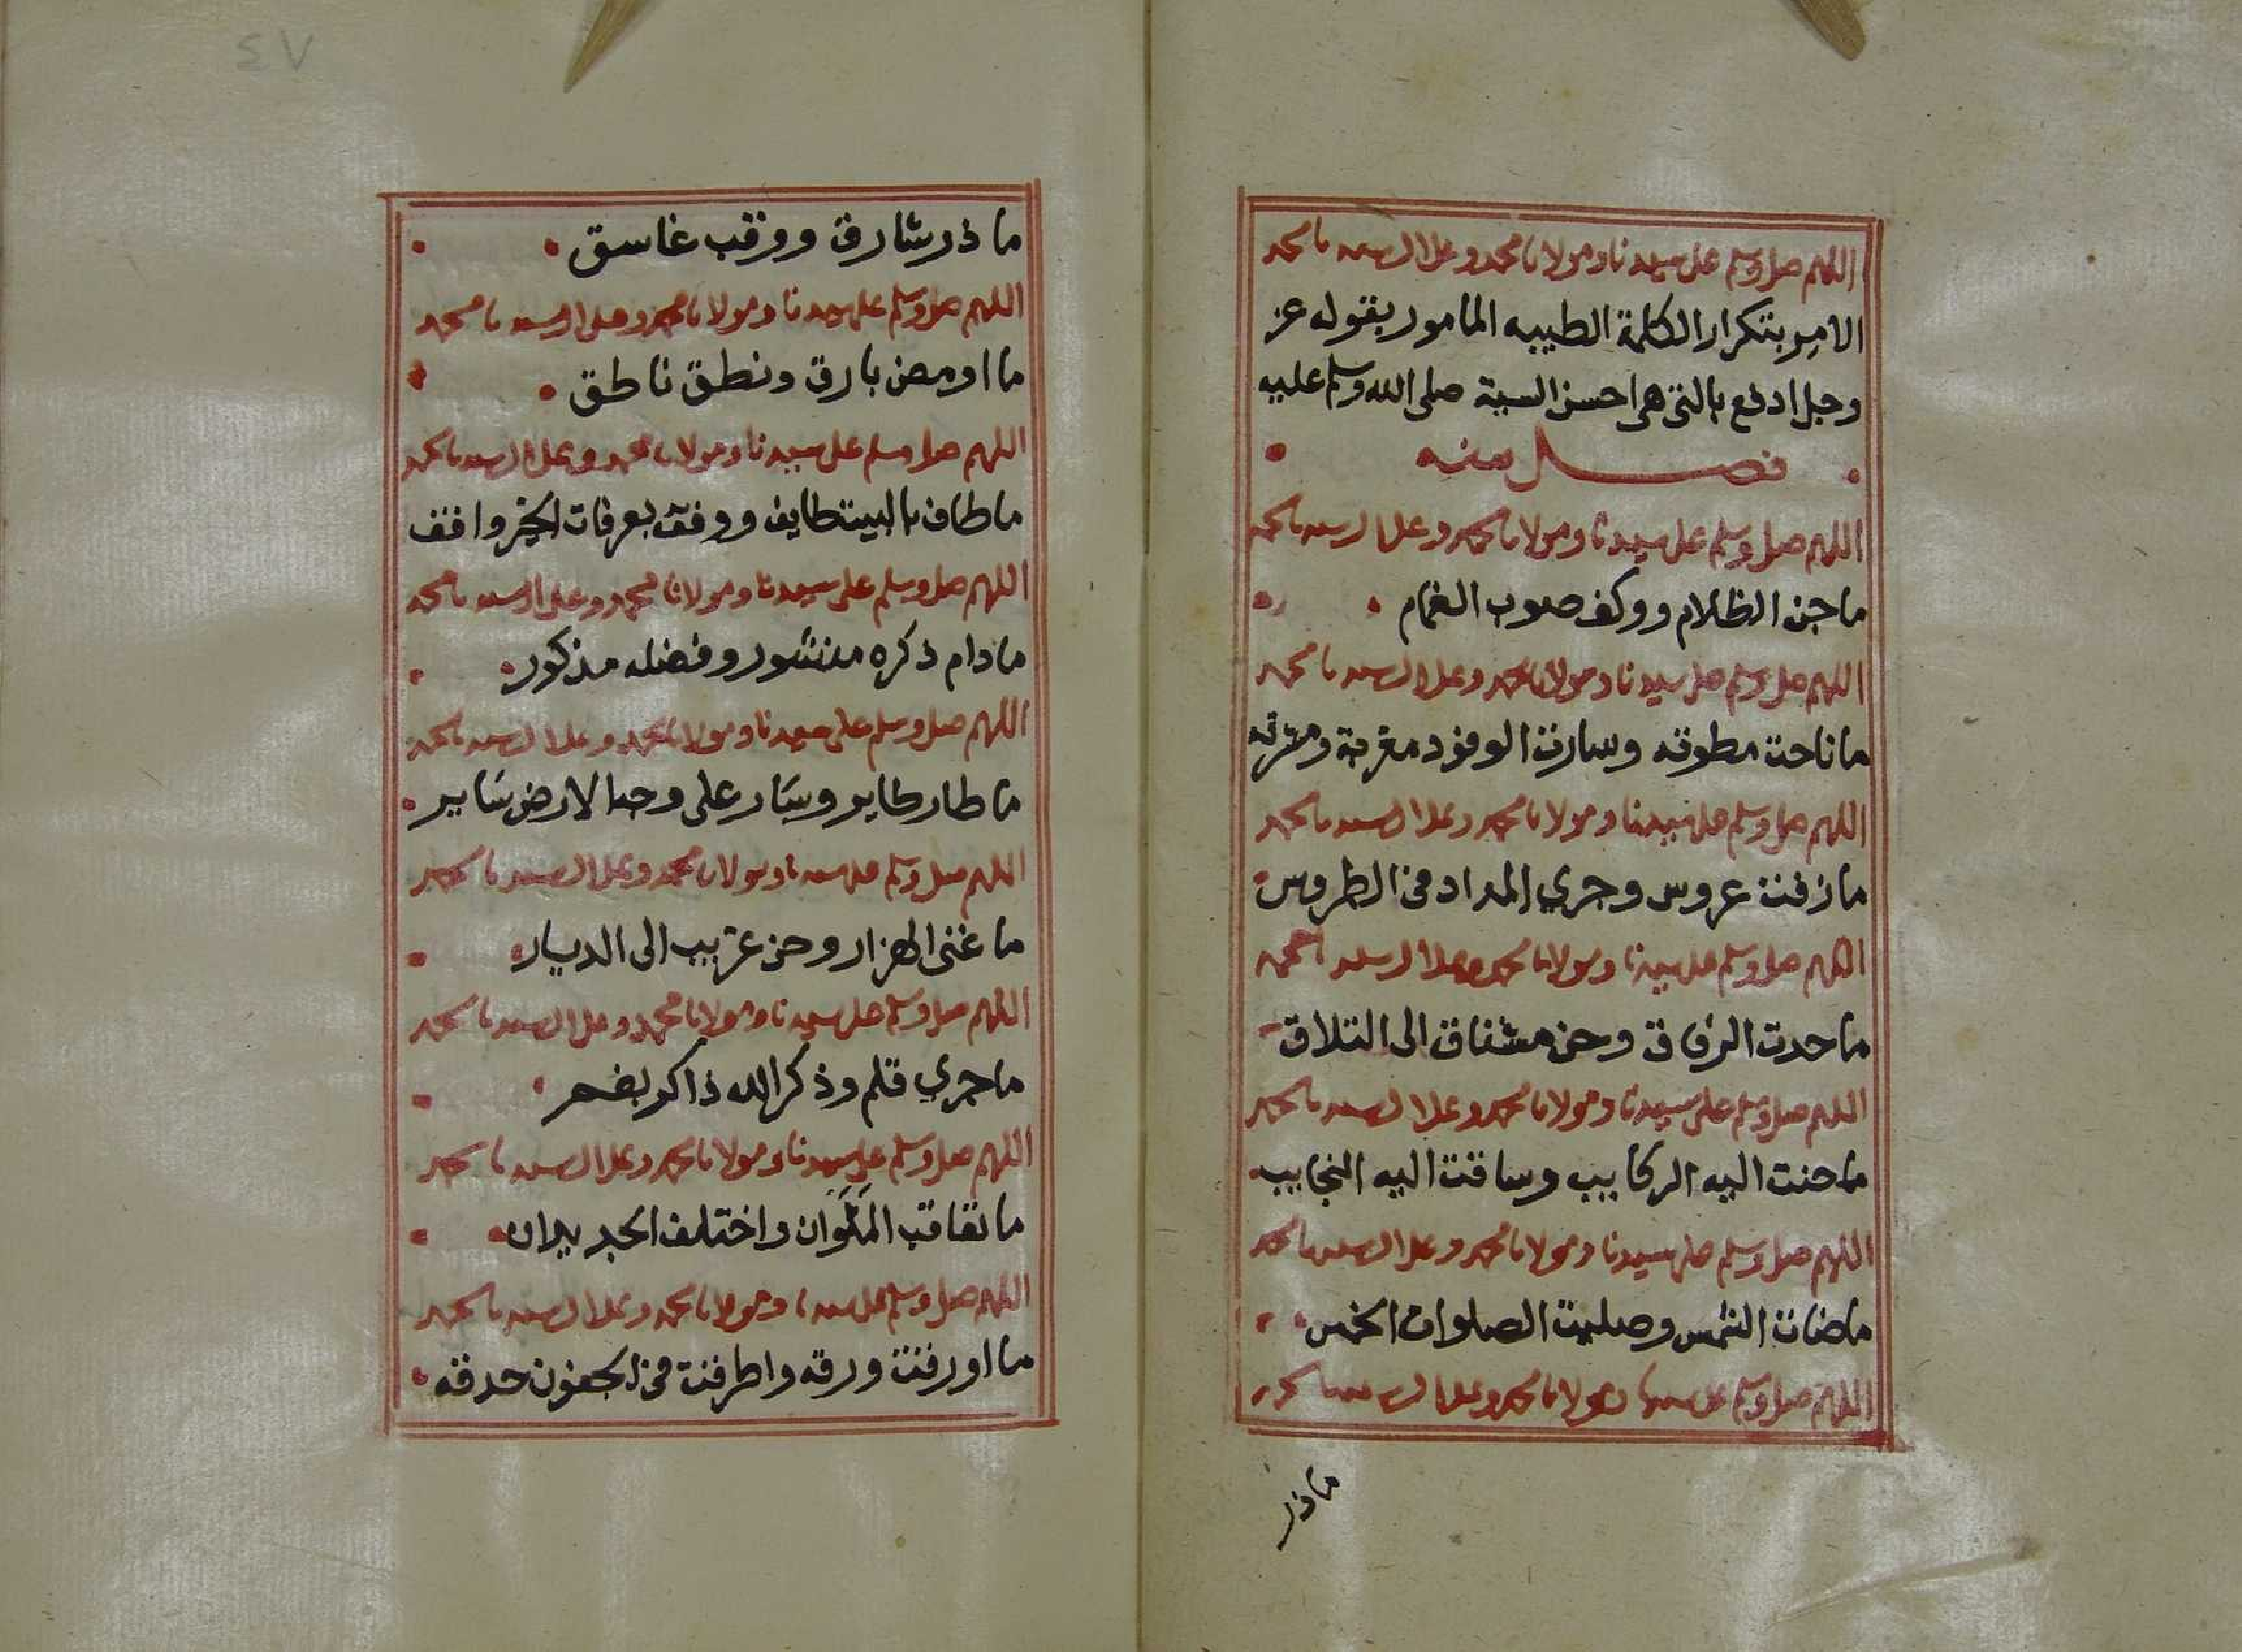 اللهم صل وسلم على سيدنا ومولانا محمد وعلى ال سيدنا محمد
الامر بتكرار الكلمة الطيبه المامور بقوله عز
وجل ادفع بالتي هي احسن السية صلى الله وسلم عليه
فصل منه
اللهم صل وسلم على سيدنا ومولانا محمد وعلى ال سيدنا محمد
ما جن الظلام ووكف صوب الغمام
اللهم صل وسلم على سيدنا ومولانا محمد وعلى ال سيدنا محمد
ما ناحت مطوقه وسارت الوفود مغربة ومشرقه
اللهم صل وسلم على سيدنا ومولانا محمد وعلى ال سيدنا محمد
ما زفت عروس وجري المداد في الطروس
اللهم صل وسلم على سيدنا ومولانا محمد وعلى ال سيدنا محمد
ما حدت الرفاق وحن مشتاق الى التلاق
اللهم صل وسلم على سيدنا ومولانا محمد وعلى ال سيدنا محمد
ما حنت اليه الركايب وساقت اليه النجايب
اللهم صل وسلم على سيدنا ومولانا محمد وعلى ال سيدنا محمد
ما ضات الشمس وصليت الصلوات الخمس
اللهم صل وسلم على سيدنا ومولانا محمد وعلى ال سيدنا محمد
ما ذر
٤٧
ما ذر شارق ووقب غاسق
اللهم صل وسلم على سيدنا ومولانا محمد وعلى ال سيدنا محمد
ما اومض بارق ونطق ناطق
اللهم صل وسلم على سيدنا ومولانا محمد وعلى ال سيدنا محمد
ما طاف بالبيت طايف ووقف بعرفات الخير واقف
اللهم صل وسلم على سيدنا ومولانا محمد وعلى ال سيدنا محمد
ما دام ذكره منشور وفضله مذكور
اللهم صل وسلم على سيدنا ومولانا محمد وعلى ال سيدنا محمد
ما طار طاير وسار على وجه الارض ساير
اللهم صل وسلم على سيدنا ومولانا محمد وعلى ال سيدنا محمد
ما غنى الهزار وحن غريب الى الديار
اللهم صل وسلم على سيدنا ومولانا محمد وعلى ال سيدنا محمد
ما جري قلم وذكر الله ذاكر بفم
اللهم صل وسلم على سيدنا ومولانا محمد وعلى ال سيدنا محمد
ما تعاقب الملَوَان واختلف الجديدان
اللهم صل وسلم على سيدنا ومولانا محمد وعلى ال سيدنا محمد
ما اورقت ورقه واطرفت في الجفون حدقه